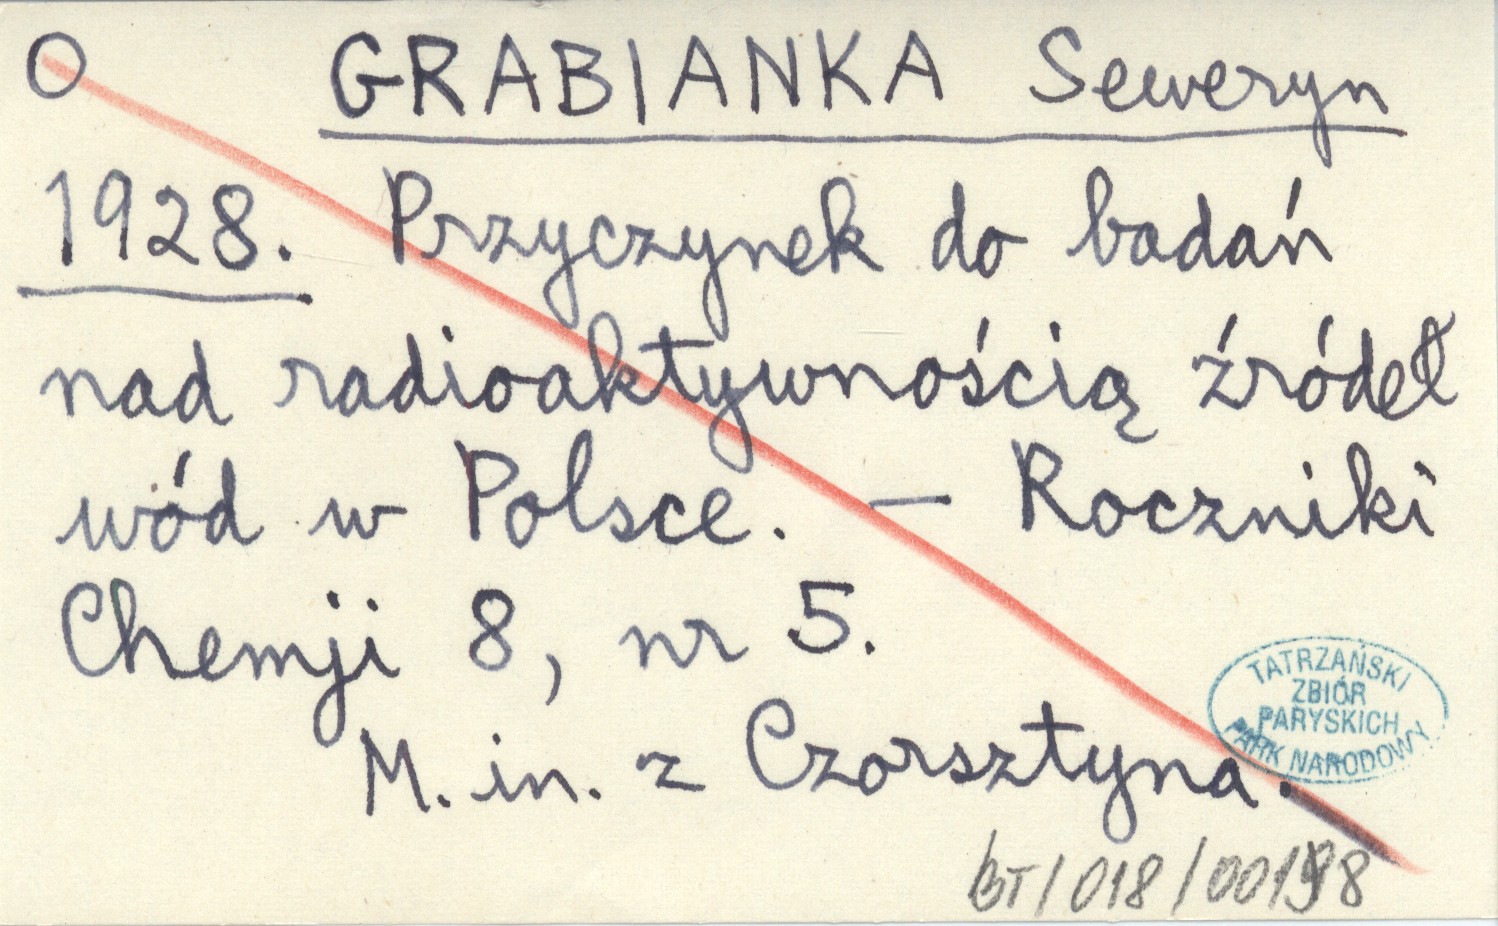 O GRABIANKA Seweryn
1928. Przyczynek do badań
nad radioaktywnością źródeł
wód w Polsce. — Roczniki
Chemji 8, nr 5.
M. in. z Czorsztyna.
TATRZAŃSKI
ZBIÓR
PARYSKICH
PARK NARODOWY